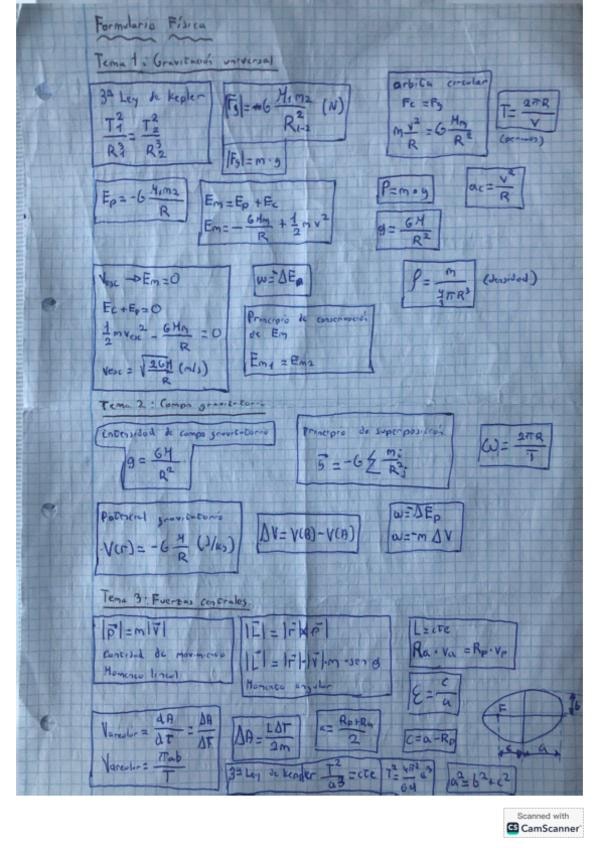 Formulario Física
Tema 1: Gravitación universal
3ª Ley de Kepler
T₁²/R₁³ = T₂²/R₂³
|Fg| = -G M₁m₂/R²₁₋₂ (N)
|Fg| = m · g
orbita circular
Fc = Fg
m v²/R = G Mm/R²
T = 2πR/v
Ep = -G M₁m₂/R
Em = Ep + Ec
Em = - GMm/R + 1/2 m v²
P = m · g
g = GM/R²
ac = v²/R
Vesc → Em = 0
Ec + Ep = 0
1/2 m vesc² - GMm/R = 0
vesc = √(2GM/R) (m/s)
w = -ΔEp
Principio de conservación
de Em
Em1 = Em2
ρ = m / (4/3 πR³) (densidad)
Tema 2: Campo gravitatorio
intensidad de campo gravitatorio
g = GM/R²
Principio de superposición
g⃗ = -G Σ mⱼ/Rⱼ²
ω = 2πR/T
Potencial gravitatorio
V(r) = -G M/R (J/kg)
ΔV = V(B) - V(A)
w = -ΔEp
w = -m ΔV
Tema 3: Fuerzas centrales
|p⃗| = m|v⃗|
Cantidad de movimiento
Momento lineal
|L⃗| = |r⃗ × p⃗|
|L⃗| = |r⃗| · |v⃗| · m · sen θ
Momento angular
L = cte
Ra · va = Rp · vp
ε = c/a
c = a - Rp
F
b
c
a
Vareolar = dA/dT = ΔA/ΔT
Vareolar = πab/T
ΔA = LΔT/2m
a = (Rp + Ra)/2
3ª Ley de Kepler T²/a³ = cte
T² = 4π²/GM a³
a² = b² + c²
Scanned with
CS CamScanner